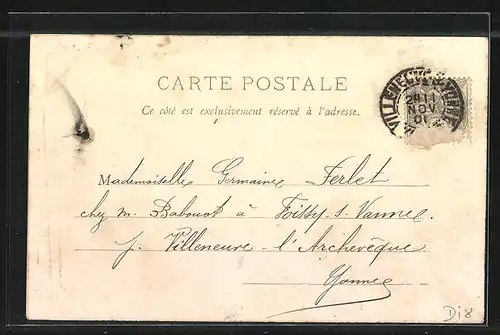 CARTE POSTALE
Ce côté est exclusivement réservé à l'adresse.
VILLENEUVE YONNE
Mademoiselle Germaine Ferlet
chez m. Babouot à Foissy-s-Vannes
p. Villeneuve-l'Archevêque
Yonne
Di8